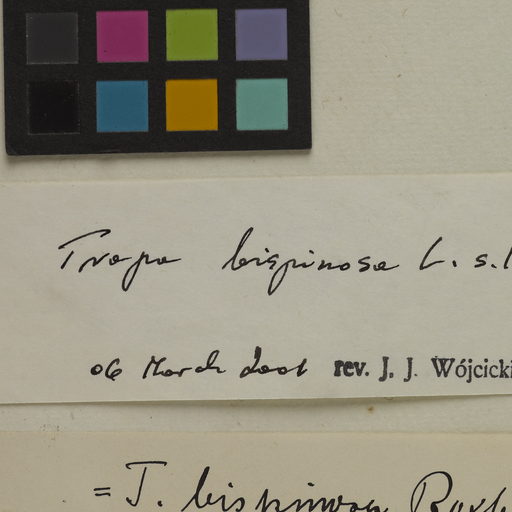 Trapa bispinosa L. s.l
06 March 2001 rev. J. J. Wójcicki
= T. bispinosa Roxb